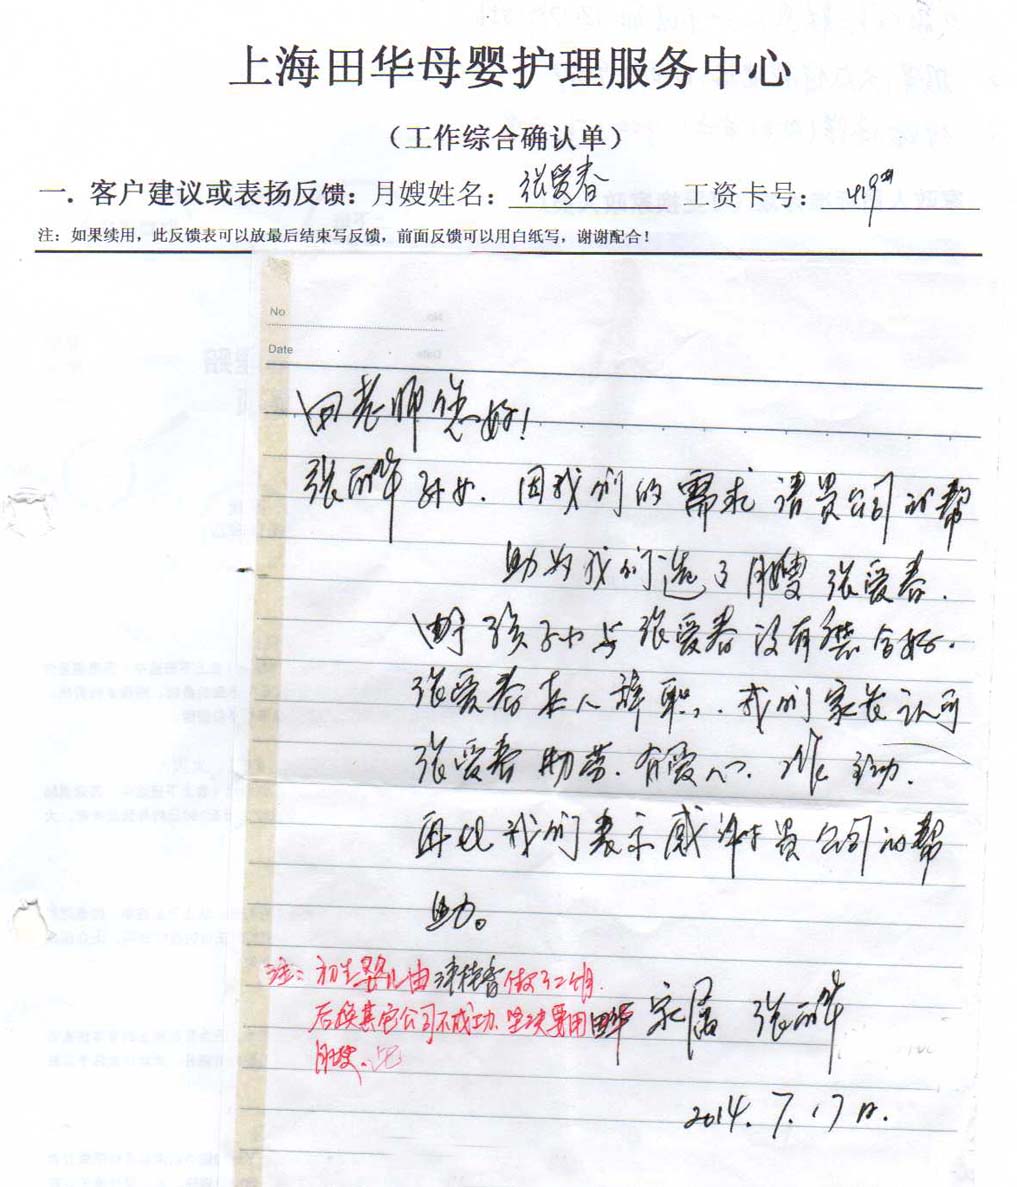 上海田华母婴护理服务中心
（工作综合确认单）
一．客户建议或表扬反馈：月嫂姓名：张爱春 工资卡号：419#
注：如果续用，此反馈表可以放最后结束写反馈，前面反馈可以用白纸写，谢谢配合！
No
Date
田老师您好！
张丽华孙女．因我们的需求请贵公司的帮
助为我们选了月嫂张爱春．
由于孩子小与张爱春没有磨合好．
张爱春本人辞职．我们家长认可
张爱春勤劳．有爱心．主动．
再此我们表示感谢贵公司的帮
助。
注：初生婴儿由 桂香做了二个月．
后换其它公司不成功．坚决要用田华
月嫂．
家属 张丽华
2014.7.17日.